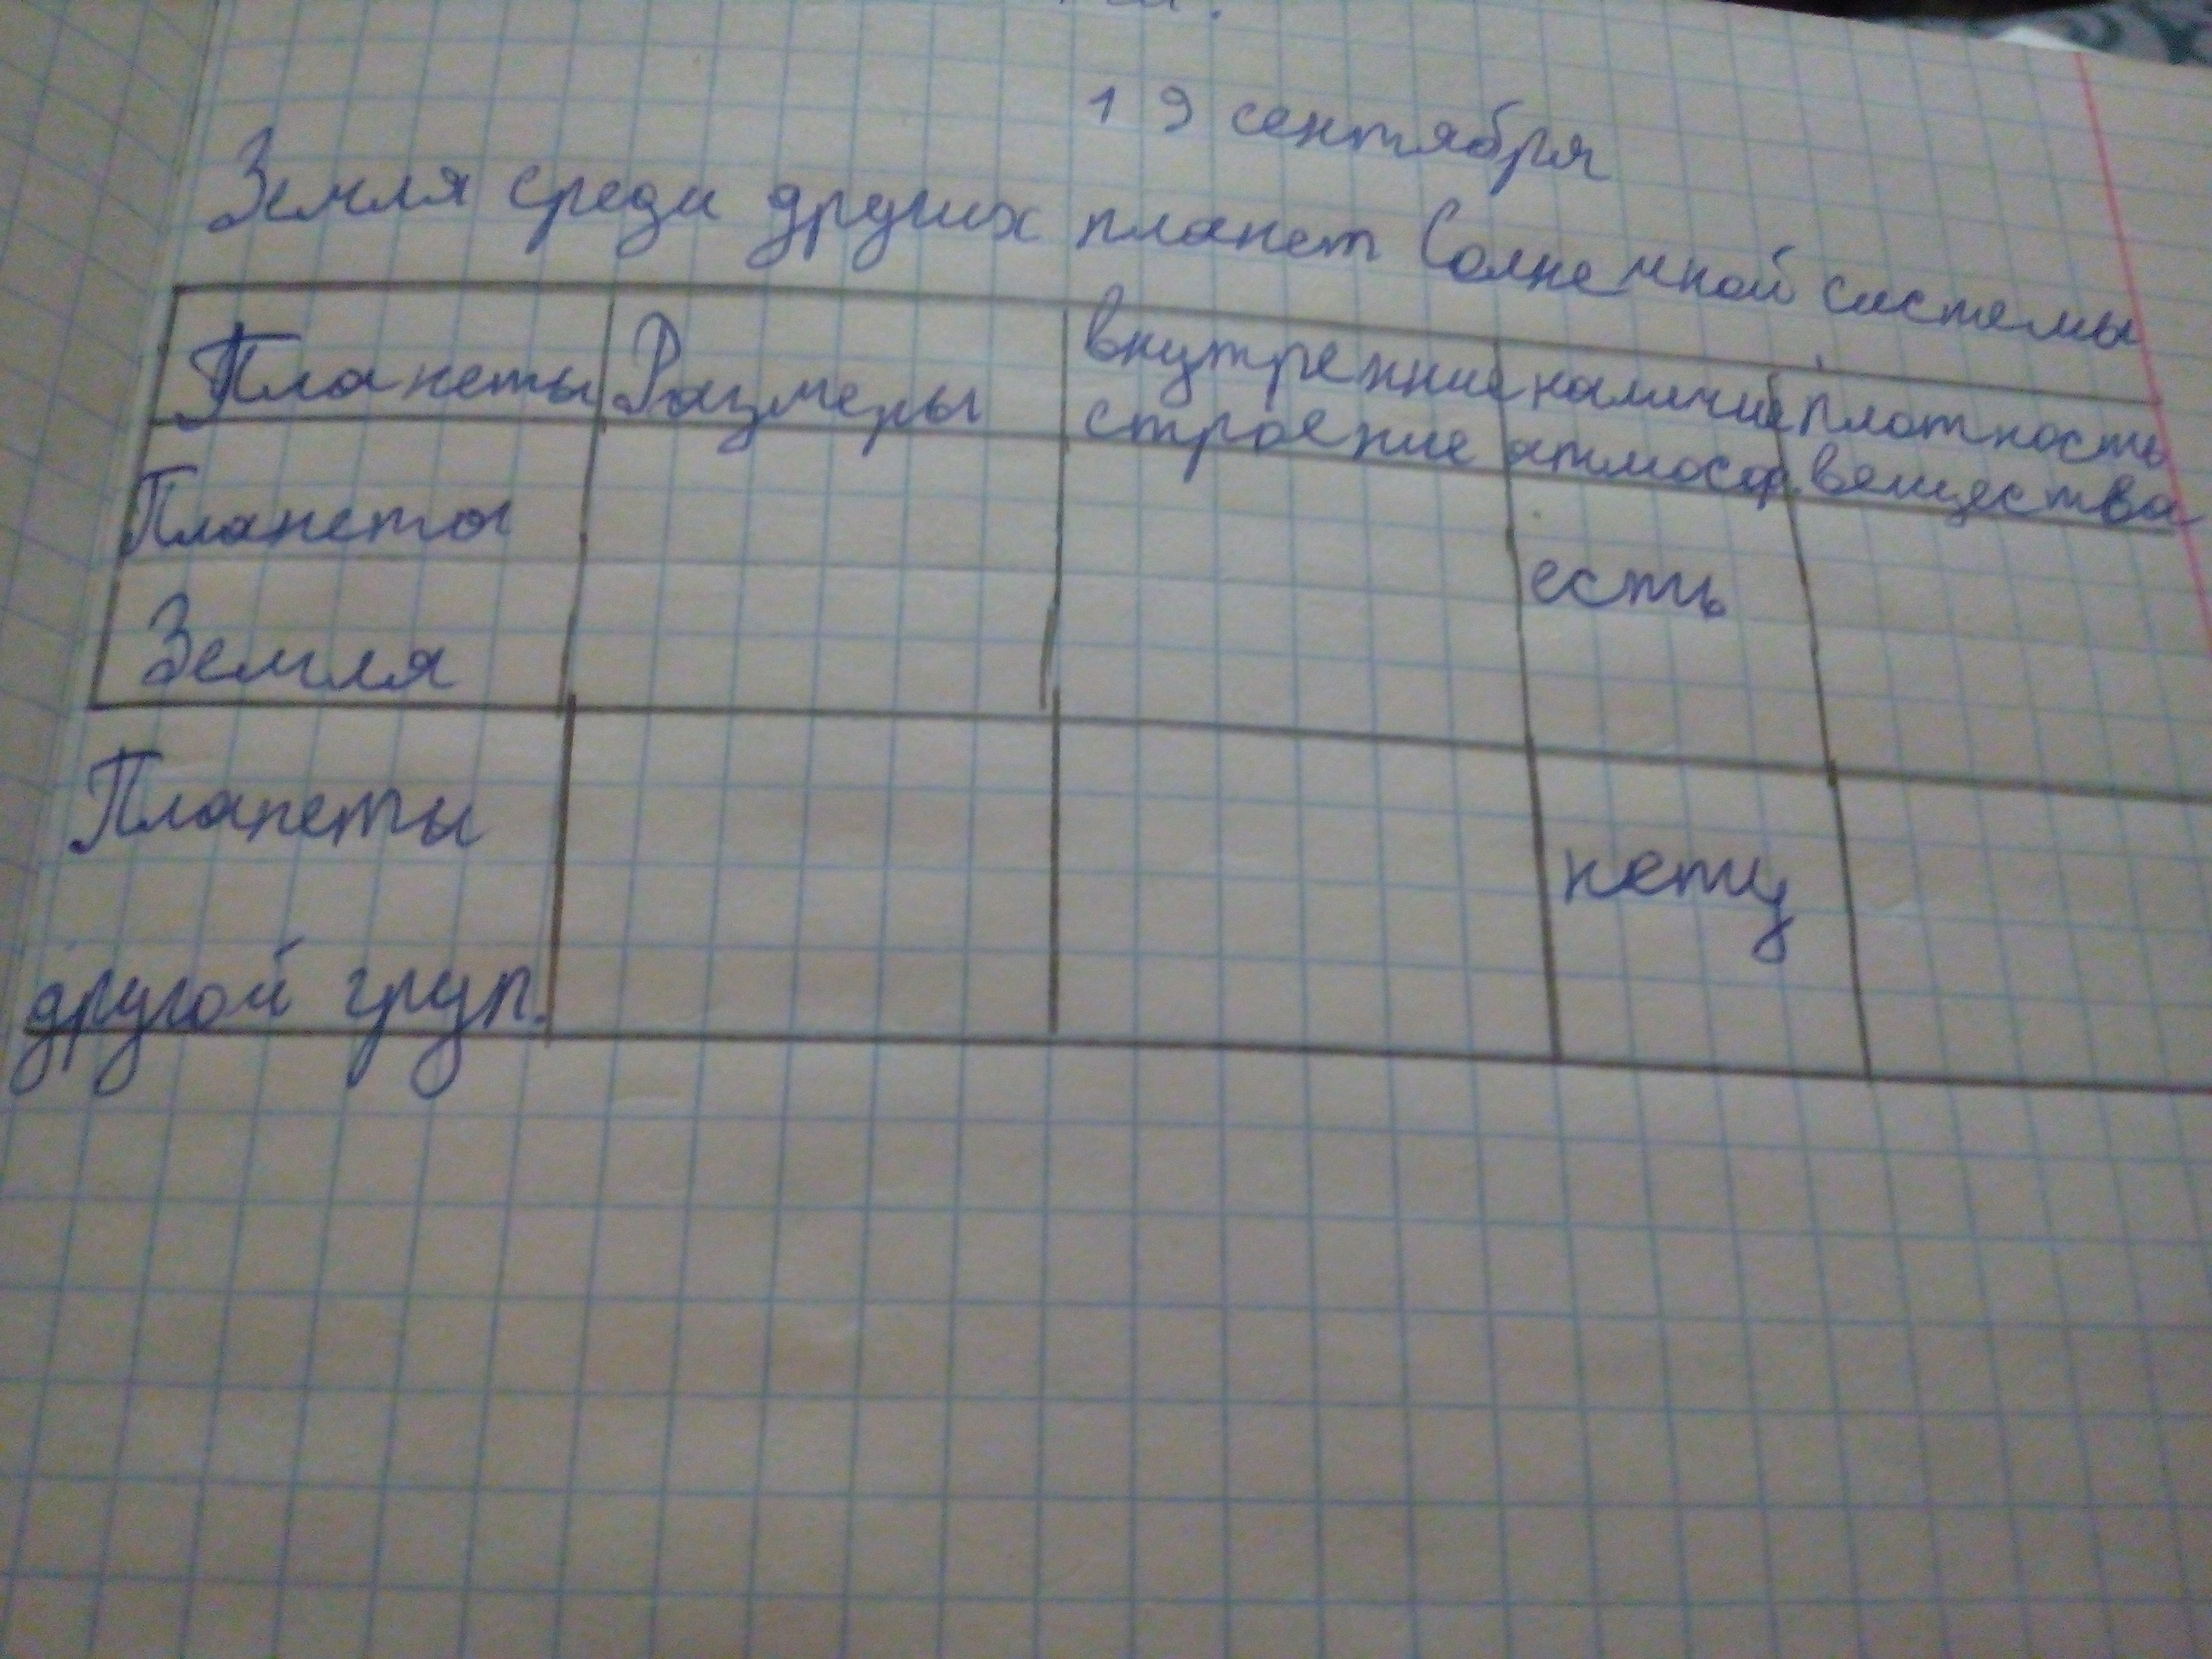 19 сентября
Земля среди других планет Солнечной системы
Планеты Размеры внутренние строение наличие атмосф. плотность вещества
Планеты
Земля
есть
Планеты
другой груп.
нету